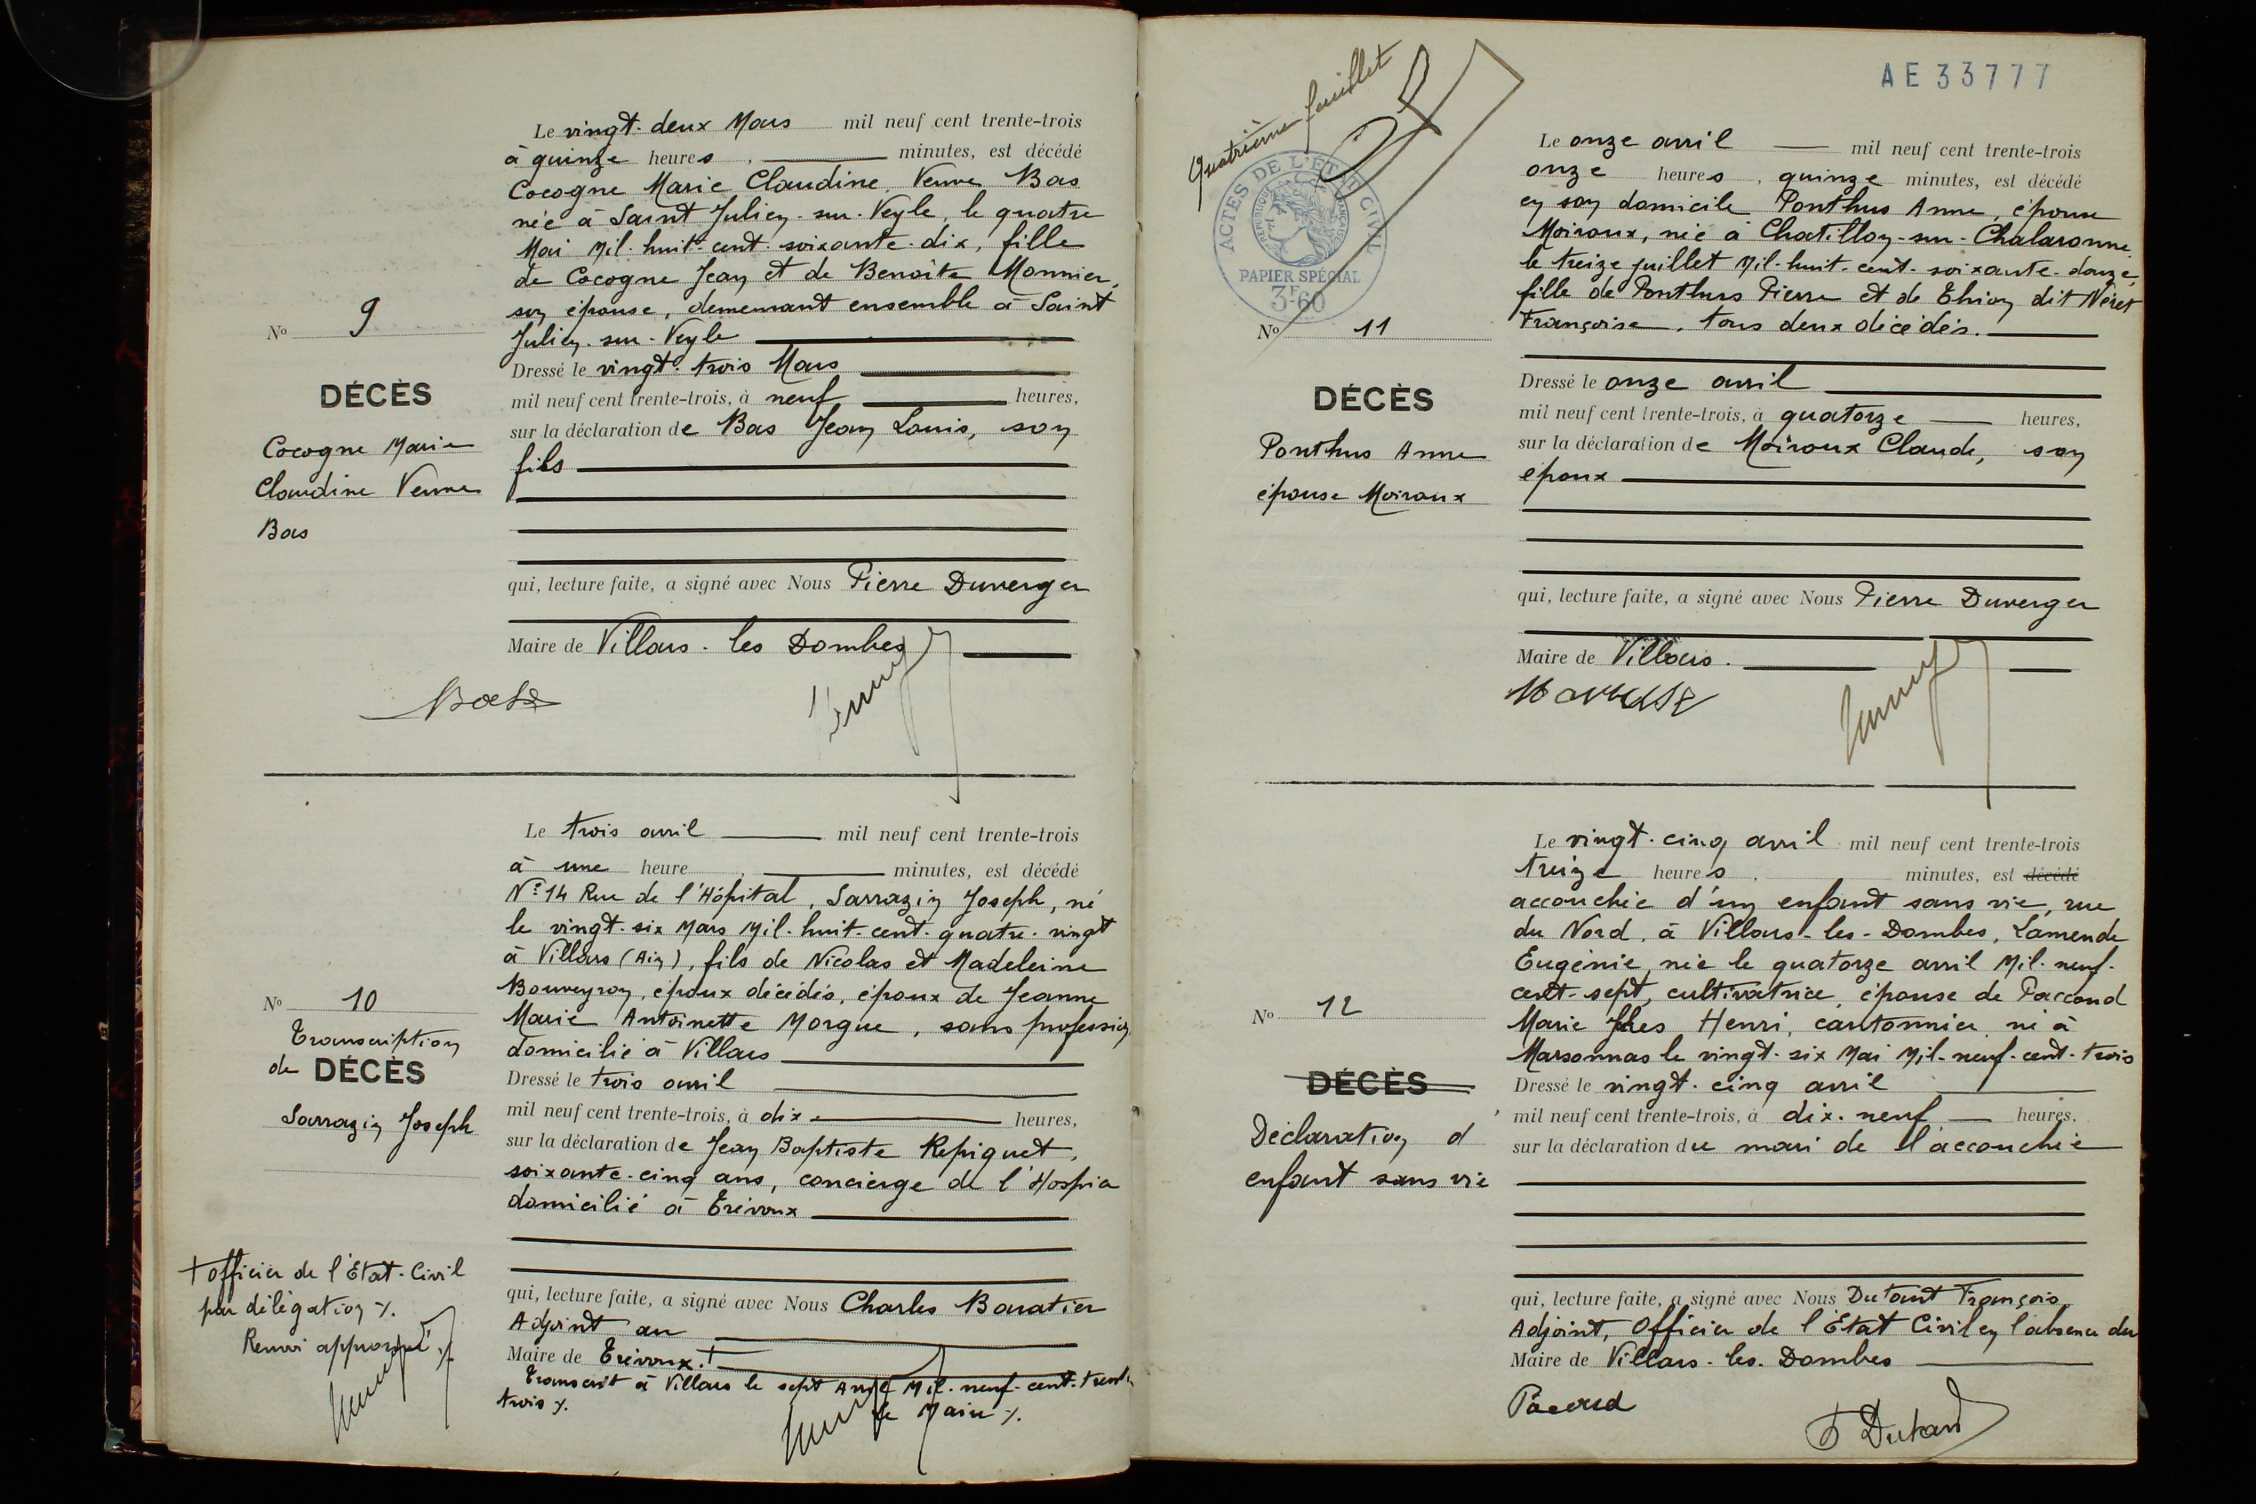 Le vingt-deux Mars mil neuf cent trente-trois
à quinze heures, minutes, est décédé
Cocogne Marie Claudine, Veuve Bas
née à Saint Julien-sur-Veyle, le quatre
Mai Mil-huit-cent-soixante-dix, fille
de Cocogne Jean et de Benoîte Monnier,
son épouse, demeurant ensemble à Saint
Julien-sur-Veyle
Dressé le vingt-trois Mars
mil neuf cent trente-trois, à neuf heures,
sur la déclaration de Bas Jean Louis, son
fils
qui, lecture faite, a signé avec Nous Pierre Duverger
Maire de Villars-les Dombes
No 9
DÉCÈS
Cocogne Marie
Claudine Veuve
Bas
Le trois avril mil neuf cent trente-trois
à une heure, minutes, est décédé
No 14 Rue de l'Hôpital, Sarrazin Joseph, né
le vingt-six Mars Mil-huit-cent-quatre-vingt
à Villars (Ain), fils de Nicolas et Madeleine
Bouveyron, époux décédés, époux de Jeanne
Marie Antoinette Morgue, sans profession
domicilié à Villars
Dressé le trois avril
mil neuf cent trente-trois, à dix heures,
sur la déclaration de Jean Baptiste Repiquet,
soixante-cinq ans, concierge de l'Hospice
domicilié à Trévoux
qui, lecture faite, a signé avec Nous Charles Baratier
Adjoint au
Maire de Trévoux.+
Transcrit à Villars le sept Avril Mil-neuf-cent-trente
trois ./.
Le Maire ./.
No 10
Transcription
de DÉCÈS
Sarrazin Joseph
+ Officier de l'Etat-Civil
par délégation ./.
Renvoi approuvé ./.
Quatrième feuillet
ACTES DE L'ÉTAT CIVIL
RÉPUBLIQUE FRANÇAISE
PAPIER SPÉCIAL
3F60
AE 33777
Le onze avril mil neuf cent trente-trois
onze heures, quinze minutes, est décédé
en son domicile Ponthus Anne, épouse
Moiroux, née à Chatillon-sur-Chalaronne,
le treize juillet Mil-huit-cent-soixante-douze,
fille de Ponthus Pierre et de Thion dit Néret
Françoise, tous deux décédés.
Dressé le onze avril
mil neuf cent trente-trois, à quatorze heures,
sur la déclaration de Moiroux Claude, son
époux
qui, lecture faite, a signé avec Nous Pierre Duverger
Maire de Villars.
No 11
DÉCÈS
Ponthus Anne
épouse Moiroux
Le vingt-cinq avril mil neuf cent trente-trois
treize heures, minutes, est décédé
accouchée d'un enfant sans vie, rue
du Nord, à Villars-les-Dombes, Lamende
Eugénie, née le quatorze avril Mil-neuf-
cent-sept, cultivatrice, épouse de Paccoud
Marie Jhes Henri, cantonnier né à
Marsonnas le vingt-six Mai Mil-neuf-cent-trois
Dressé le vingt-cinq avril
mil neuf cent trente-trois, à dix-neuf heures,
sur la déclaration du mari de l'accouchée
qui, lecture faite, a signé avec Nous Dutant François
Adjoint, Officier de l'Etat Civil en l'absence du
Maire de Villars-les-Dombes
Pacoud
F Dutant
No 12
DÉCÈS
Déclaration d'
enfant sans vie